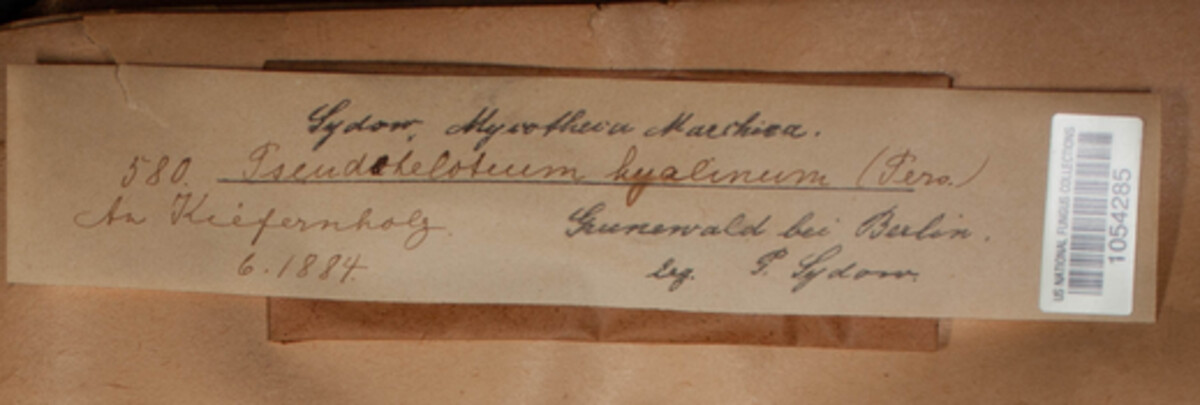 Sydow, Mycotheca Marchica.
580. Pseudohelotium hyalinum (Pers.)
An Kiefernholz. Grunewald bei Berlin.
6. 1884. leg. P. Sydow.
US NATIONAL FUNGUS COLLECTIONS
1054285